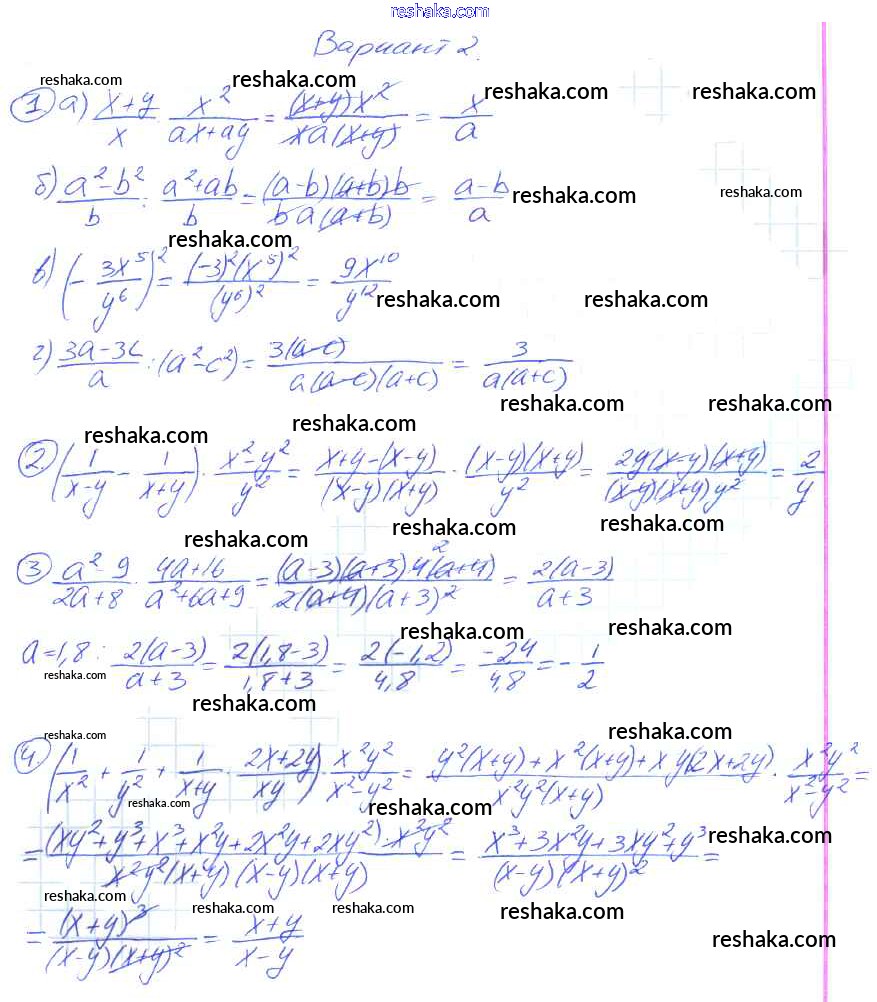 reshaka.com
Вариант 2.
reshaka.com reshaka.com reshaka.com reshaka.com
① а) (x+y)/x · x²/(ax+ay) = ((x+y)x²)/(xa(x+y)) = x/a
б) (a²-b²)/b : (a²+ab)/b = ((a-b)(a+b)b)/(b a(a+b)) = (a-b)/a reshaka.com reshaka.com
reshaka.com
в) (-3x⁵/y⁶)² = ((-3)²(x⁵)²)/(y⁶)² = 9x¹⁰/y¹² reshaka.com reshaka.com
г) (3a-3c)/a : (a²-c²) = 3(a-c)/(a(a-c)(a+c)) = 3/(a(a+c))
reshaka.com reshaka.com
reshaka.com reshaka.com
② (1/(x-y) - 1/(x+y)) · (x²-y²)/y² = (x+y-(x-y))/((x-y)(x+y)) · ((x-y)(x+y))/y² = (2y(x-y)(x+y))/((x-y)(x+y)y²) = 2/y
reshaka.com reshaka.com reshaka.com
③ (a²-9)/(2a+8) · (4a+16)/(a²+6a+9) = ((a-3)(a+3)4²(a+4))/(2(a+4)(a+3)²) = 2(a-3)/(a+3)
reshaka.com reshaka.com
a=1,8 : 2(a-3)/(a+3) = 2(1,8-3)/(1,8+3) = 2(-1,2)/4,8 = -24/4,8 = -1/2
reshaka.com
reshaka.com
reshaka.com reshaka.com
④ (1/x² + 1/y² + 1/(x+y) · (2x+2y)/(xy)) · x²y²/(x²-y²) = (y²(x+y)+x²(x+y)+xy(2x+2y))/(x²y²(x+y)) · x²y²/(x²-y²) =
reshaka.com reshaka.com
= ((xy²+y³+x³+x²y+2x²y+2xy²)·x²y²)/(x²y²(x+y)(x-y)(x+y)) = (x³+3x²y+3xy²+y³)/((x-y)(x+y)²) = reshaka.com
reshaka.com reshaka.com reshaka.com reshaka.com
= (x+y)³/((x-y)(x+y)²) = (x+y)/(x-y)
reshaka.com